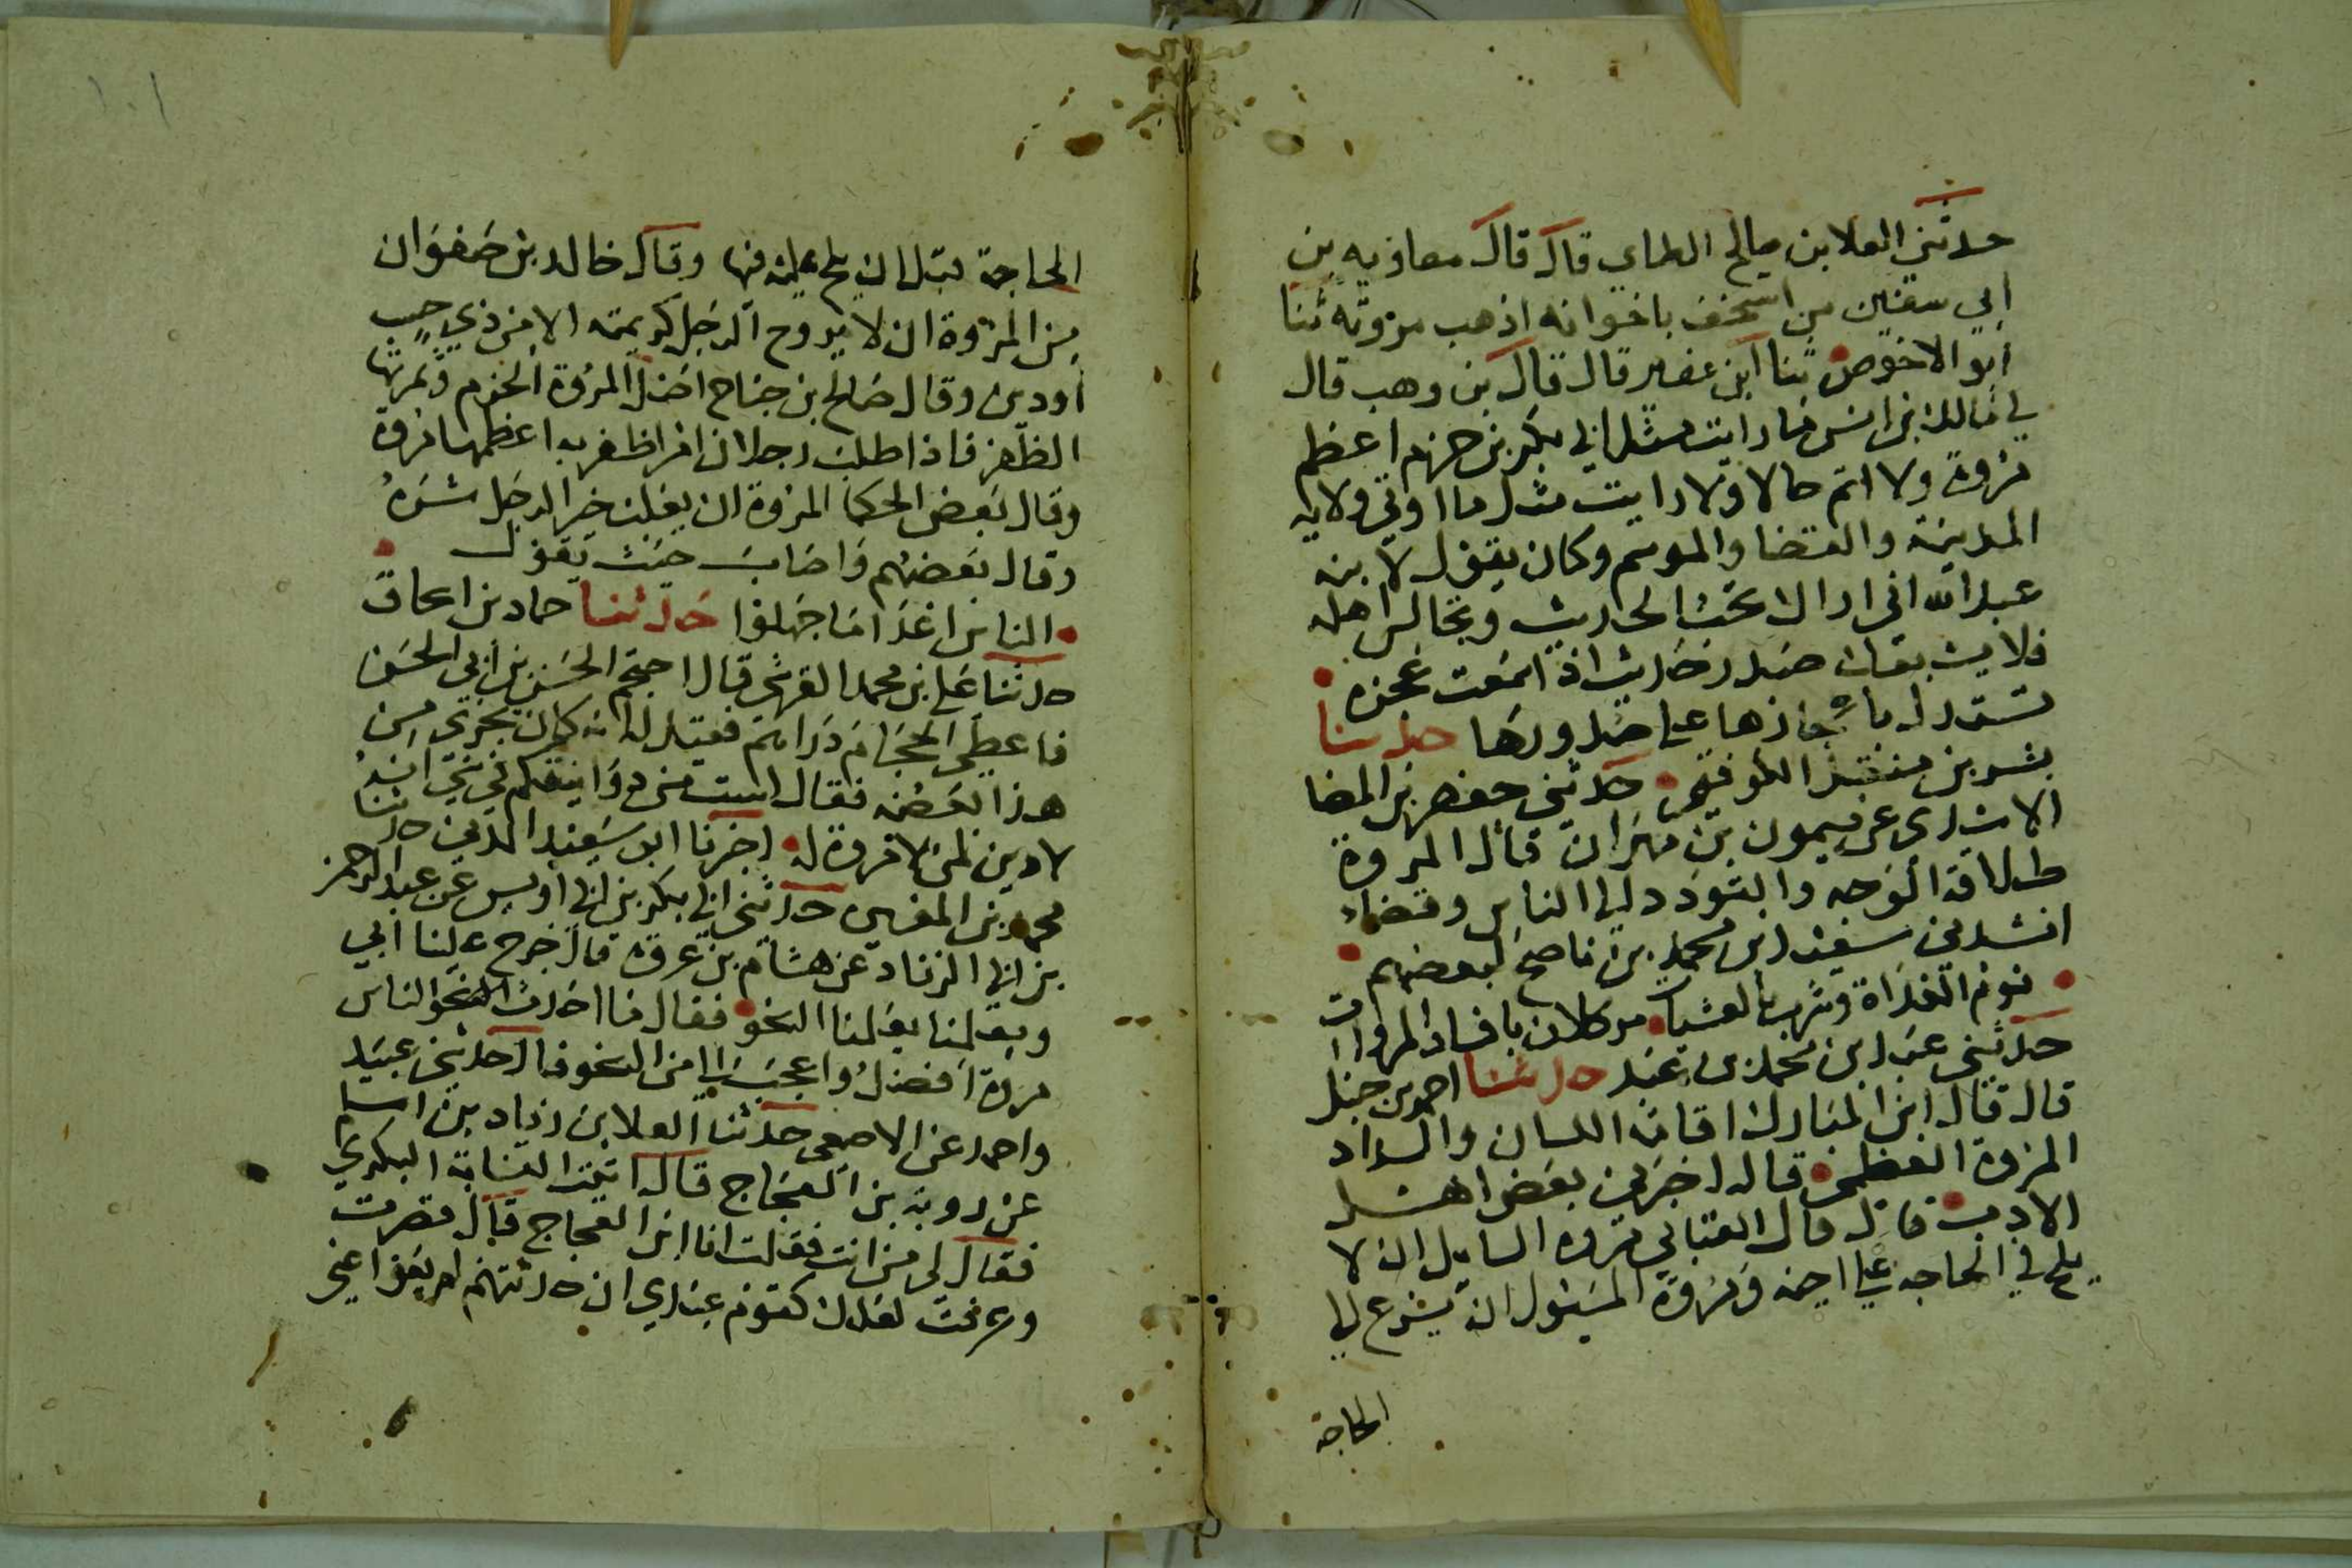 حدثني العلا بن صالح الطاي قال قال معاويه بن
ابي سفين من استخف باخوانه اذهب مروته ثنا
ابو الاخوص ثنا ابن عفير قال قال بن وهب قال
لي مالك بن انس ما رايت مثل ابي بكر بن حزم اعظم
مروة ولا اتم حالا ولا رايت مثل ما اوتي ولايه
المدينة والقضا والموسم وكان يقول لابنه
عبد الله اني اراك تحب الحديث وتجالس اهله
فلا يستقبلك صدر حديث اذا سمعت عجزه
تستدل باعجازها على صدورها حدثنا
بشر بن منقذ الكوفي حدثني حفص بن المضا
الاسدي عن ميمون بن مهران قال المروة
طلاقة الوجه والتودد الى الناس وقضا
انشدني سعيد بن محمد بن ناصح لبعضهم
نوم الغداة وشرب العشيات موكلان بافساد المروات
حدثني عبد بن محمد بن عبد حدثنا احمد بن حنبل
قال قال ابن المبارك اقامة اللسان والسداد
المروة العظمى قال اخبرني بعض اهل
الادب قال قال العتابي مروة السايل ان لا
يلح في الحاجه على اخيه ومروة المسئول ان يشرع الى
الحاجة
١٠١
الحاجة قبل ان يلح عليه فيها وقال خالد بن صفوان
من المروة ان لا يزوج الرجل كريمته الا من ذي حسب
او دين وقال صالح بن جناح افضل المروة الحزم وثمرتها
الظفر فاذا طلب رجلان امرا ظفر به اعظمهما مروة
وقال بعض الحكما المروة ان يغلب خير الرجل شره
وقال بعضهم واصاب حيث يقول
الناس اعدا ما جهلوا حدثنا حماد بن اسحاق
حدثنا علي بن محمد القرشي قال احتجم الحسن بن ابي الحسن
فاعطى الحجام دراهم فقيل له انه كان يجزي من
هذا بعضه فقال لست من دوانيقكم في شي انه
لا دين لمن لا مروة له اخبرنا ابو سعيد المدني حدثنا
محمد بن المغيره حدثني ابي بكر بن ابي اويس عن عبد الرحمن
بن ابي الزناد عن هشام بن عروه قال خرج علينا ابي
ومعلمنا يعلمنا النحو فقال ما احدث النحو الناس
مروة افضل واعجب الي من النحو قال حدثني عبيد
واحمد عن الاصمعي حدثنا العلا بن زياد بن اسلم
عن روبة بن العجاج قال اتيت النسابة البكري
فقال لي من انت فقلت انا ابن العجاج قال قصرت
وعرفت لعلك كقوم عندي ان حدثتهم لم يعوا عني